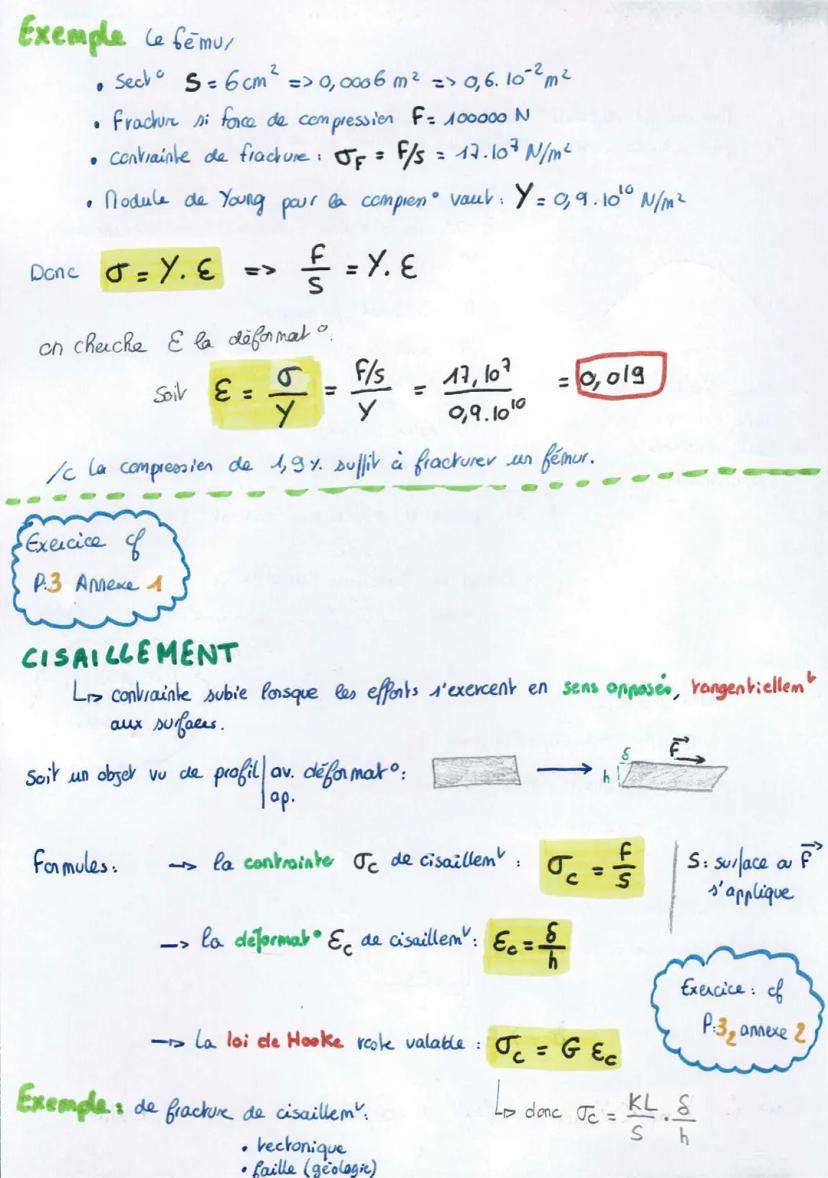 Exemple le fému/
• Sect° S = 6 cm² => 0,0006 m² => 0,6.10⁻² m²
• Fracture si force de compression F = 100000 N
• contrainte de fracture : σF = F/S = 17.10⁷ N/m²
• Module de Young pour la compren° vaut : Y = 0,9.10¹⁰ N/m²
Donc σ = Y. ε => F/S = Y. ε
on cherche ε la déformat°.
Soit ε = σ/Y = F/S/Y = 17,10⁷/0,9.10¹⁰ = 0,019
/c la compression de 1,9% suffit à fracturer un fémur.
Exercice cf
P.3 Annexe 1
CISAILLEMENT
↳ contrainte subie lorsque les efforts s'exercent en sens opposés, tangentiellemᵗ
aux surfaces.
Soit un objet vu de profil | av. déformat° :
ap.
δ F⃗
h
Formules : -> la contrainte σc de cisaillemᵗ : σc = F/S
S : surface où F⃗
s'applique
-> la déformat° εc de cisaillemᵗ : εc = δ/h
Exercice : cf
P.32 annexe 2
-> La loi de Hooke reste valable : σc = G εc
↳ donc σc = KL/S . δ/h
Exemple : de fracture de cisaillemᵗ.
• tectonique
• faille (géologie)